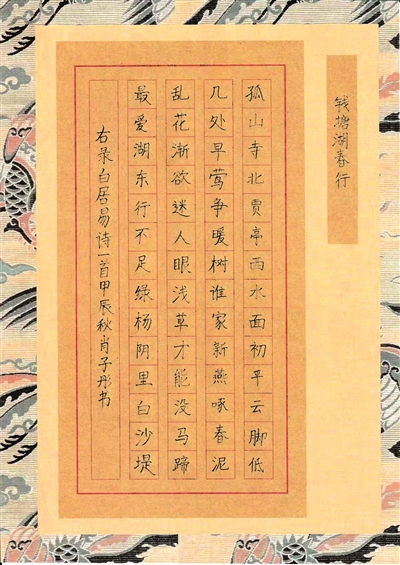 钱塘湖春行
孤山寺北贾亭西水面初平云脚低
几处早莺争暖树谁家新燕啄春泥
乱花渐欲迷人眼浅草才能没马蹄
最爱湖东行不足绿杨阴里白沙堤
右录白居易诗一首甲辰秋肖子彤书